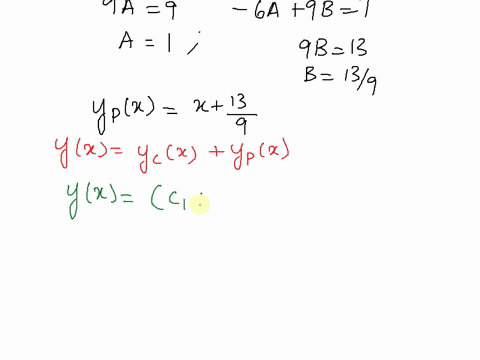 9A = 9    -6A + 9B = 7
A = 1 ;    9B = 13
B = 13/9
yp(x) = x + 13/9
y(x) = yc(x) + yp(x)
y(x) = (c1